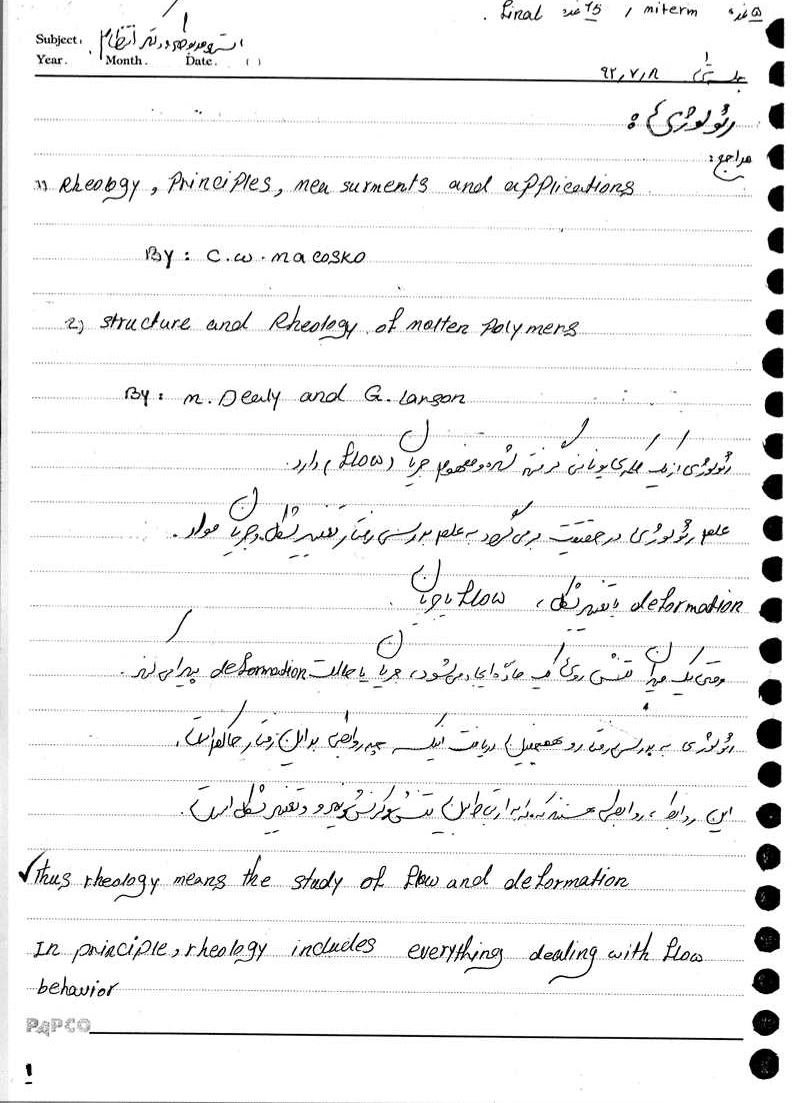 ۵ نمره miterm / 15 نمره final .
Subject:
Year. Month. Date. ( )
جلسه ی ۱ ۹۲٫۷٫۸
رئولوژی :
مراجع:
1) Rheology, Principles, mea surments and applications
By: C.W. macosko
2) structure and Rheology of molten polymers
By: M. Dealy and G. Larson
رئولوژی از یک کلمه ی یونانی گرفته شده و مفهوم جریان (flow) دارد.
علم رئولوژی در حقیقت برمی گردد به علم بررسی رفتار تغییر شکل و جریان مواد.
deformation یا تغییر شکل ، flow یا جریان .
وقتی یک میدان تنش روی یک ماده ایجاد می شود، جریان یا حالت deformation پیدا می کند.
رئولوژی به بررسی رفتار و همچنین دریافت اینکه چه روابطی بر این رفتار حاکم است،
این روابط، روابطی هستند که به ارتباط بین تنش و کرنش و تغییر شکل است.
✓Thus rheology means the study of flow and deformation
In principle, rheology includes everything dealing with flow
behavior
PAPCO
1